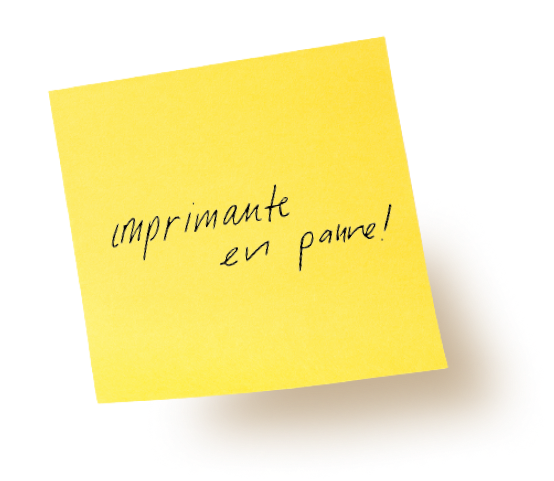 imprimante
en panne!